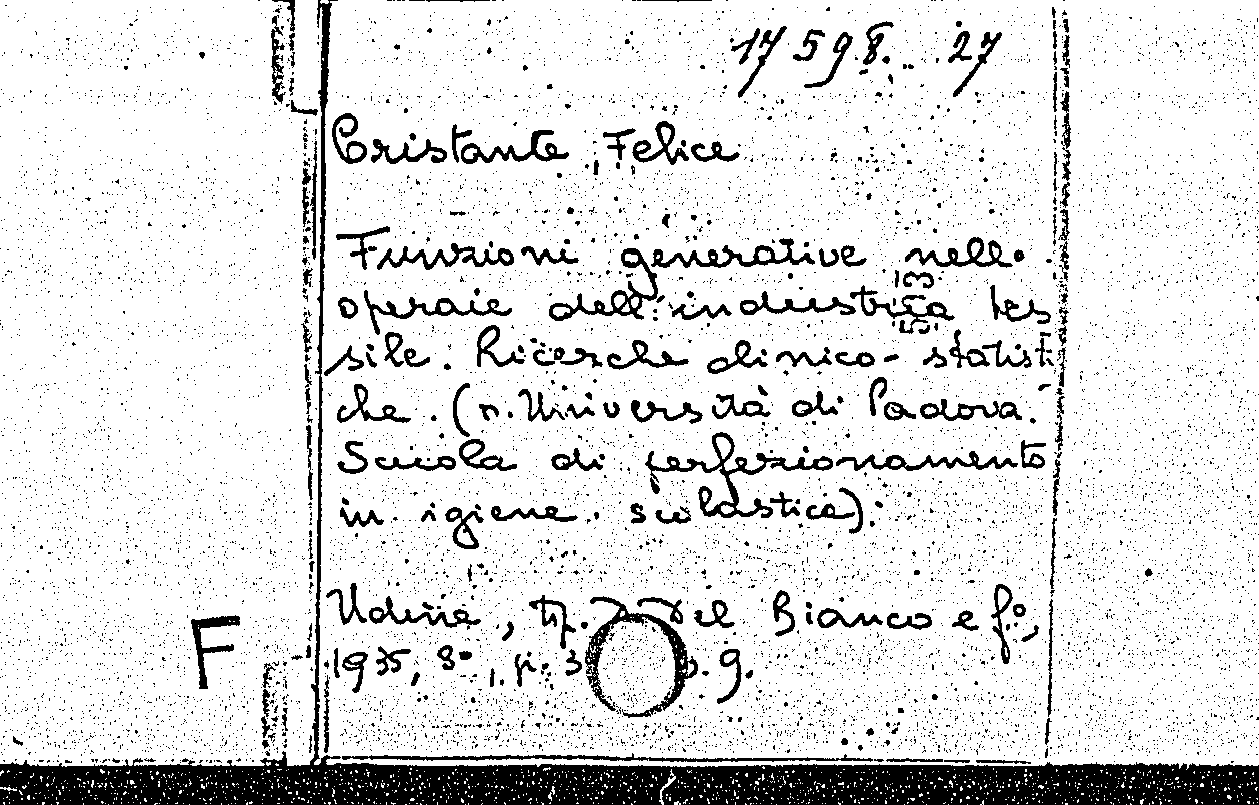 17598. 27
Cristante, Felice
Funzioni generative nelle
operaie dell'industria tes
sile. Ricerche clinico-statisti
che. (n. Università di Padova.
Scuola di perfezionamento
in igiene scolastica).
Udine, tip. D. Del Bianco e f.º,
1935, 8º, p. 3 . 9.
F